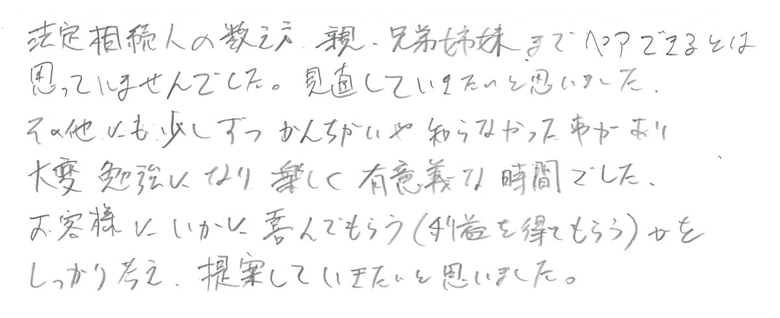 法定相続人の数え方 親、兄弟姉妹までペアできるとは
思っていませんでした。見直していきたいと思いました。
その他にも少しずつかんちがいや知らなかった事があり
大変勉強になり楽しく有意義な時間でした。
お客様にいかに喜んでもらう(利益を得てもらう)かを
しっかり考え、提案していきたいと思いました。